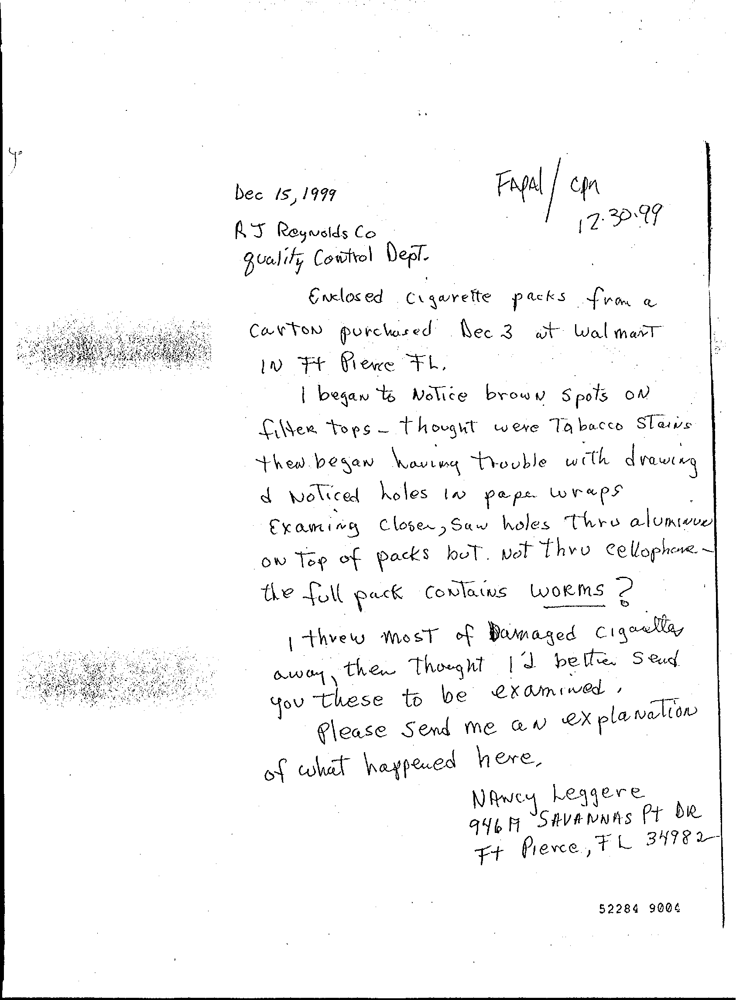 Dec 15, 1999
FAPAl / cpn
12.30.99
RJ Reynolds Co
quality Control Dept.
Enclosed cigarette packs from a
carton purchased Dec 3 at Walmart
IN Ft Pierce FL.
I began to Notice brown spots ON
filter tops - thought were Tabacco Stains
then began having trouble with drawing
& Noticed holes in paper wraps
Examing closer, Saw holes thru aluminue
on top of packs but not thru cellophane -
the full pack contains WORMS?
I threw most of Damaged cigarettes
away, then thought I'd better send
you these to be examined.
Please send me an explanation
of what happened here,
NANCY Leggere
946 A SAVANNAS Pt DR
Ft Pierce, FL 34982
52284 9004